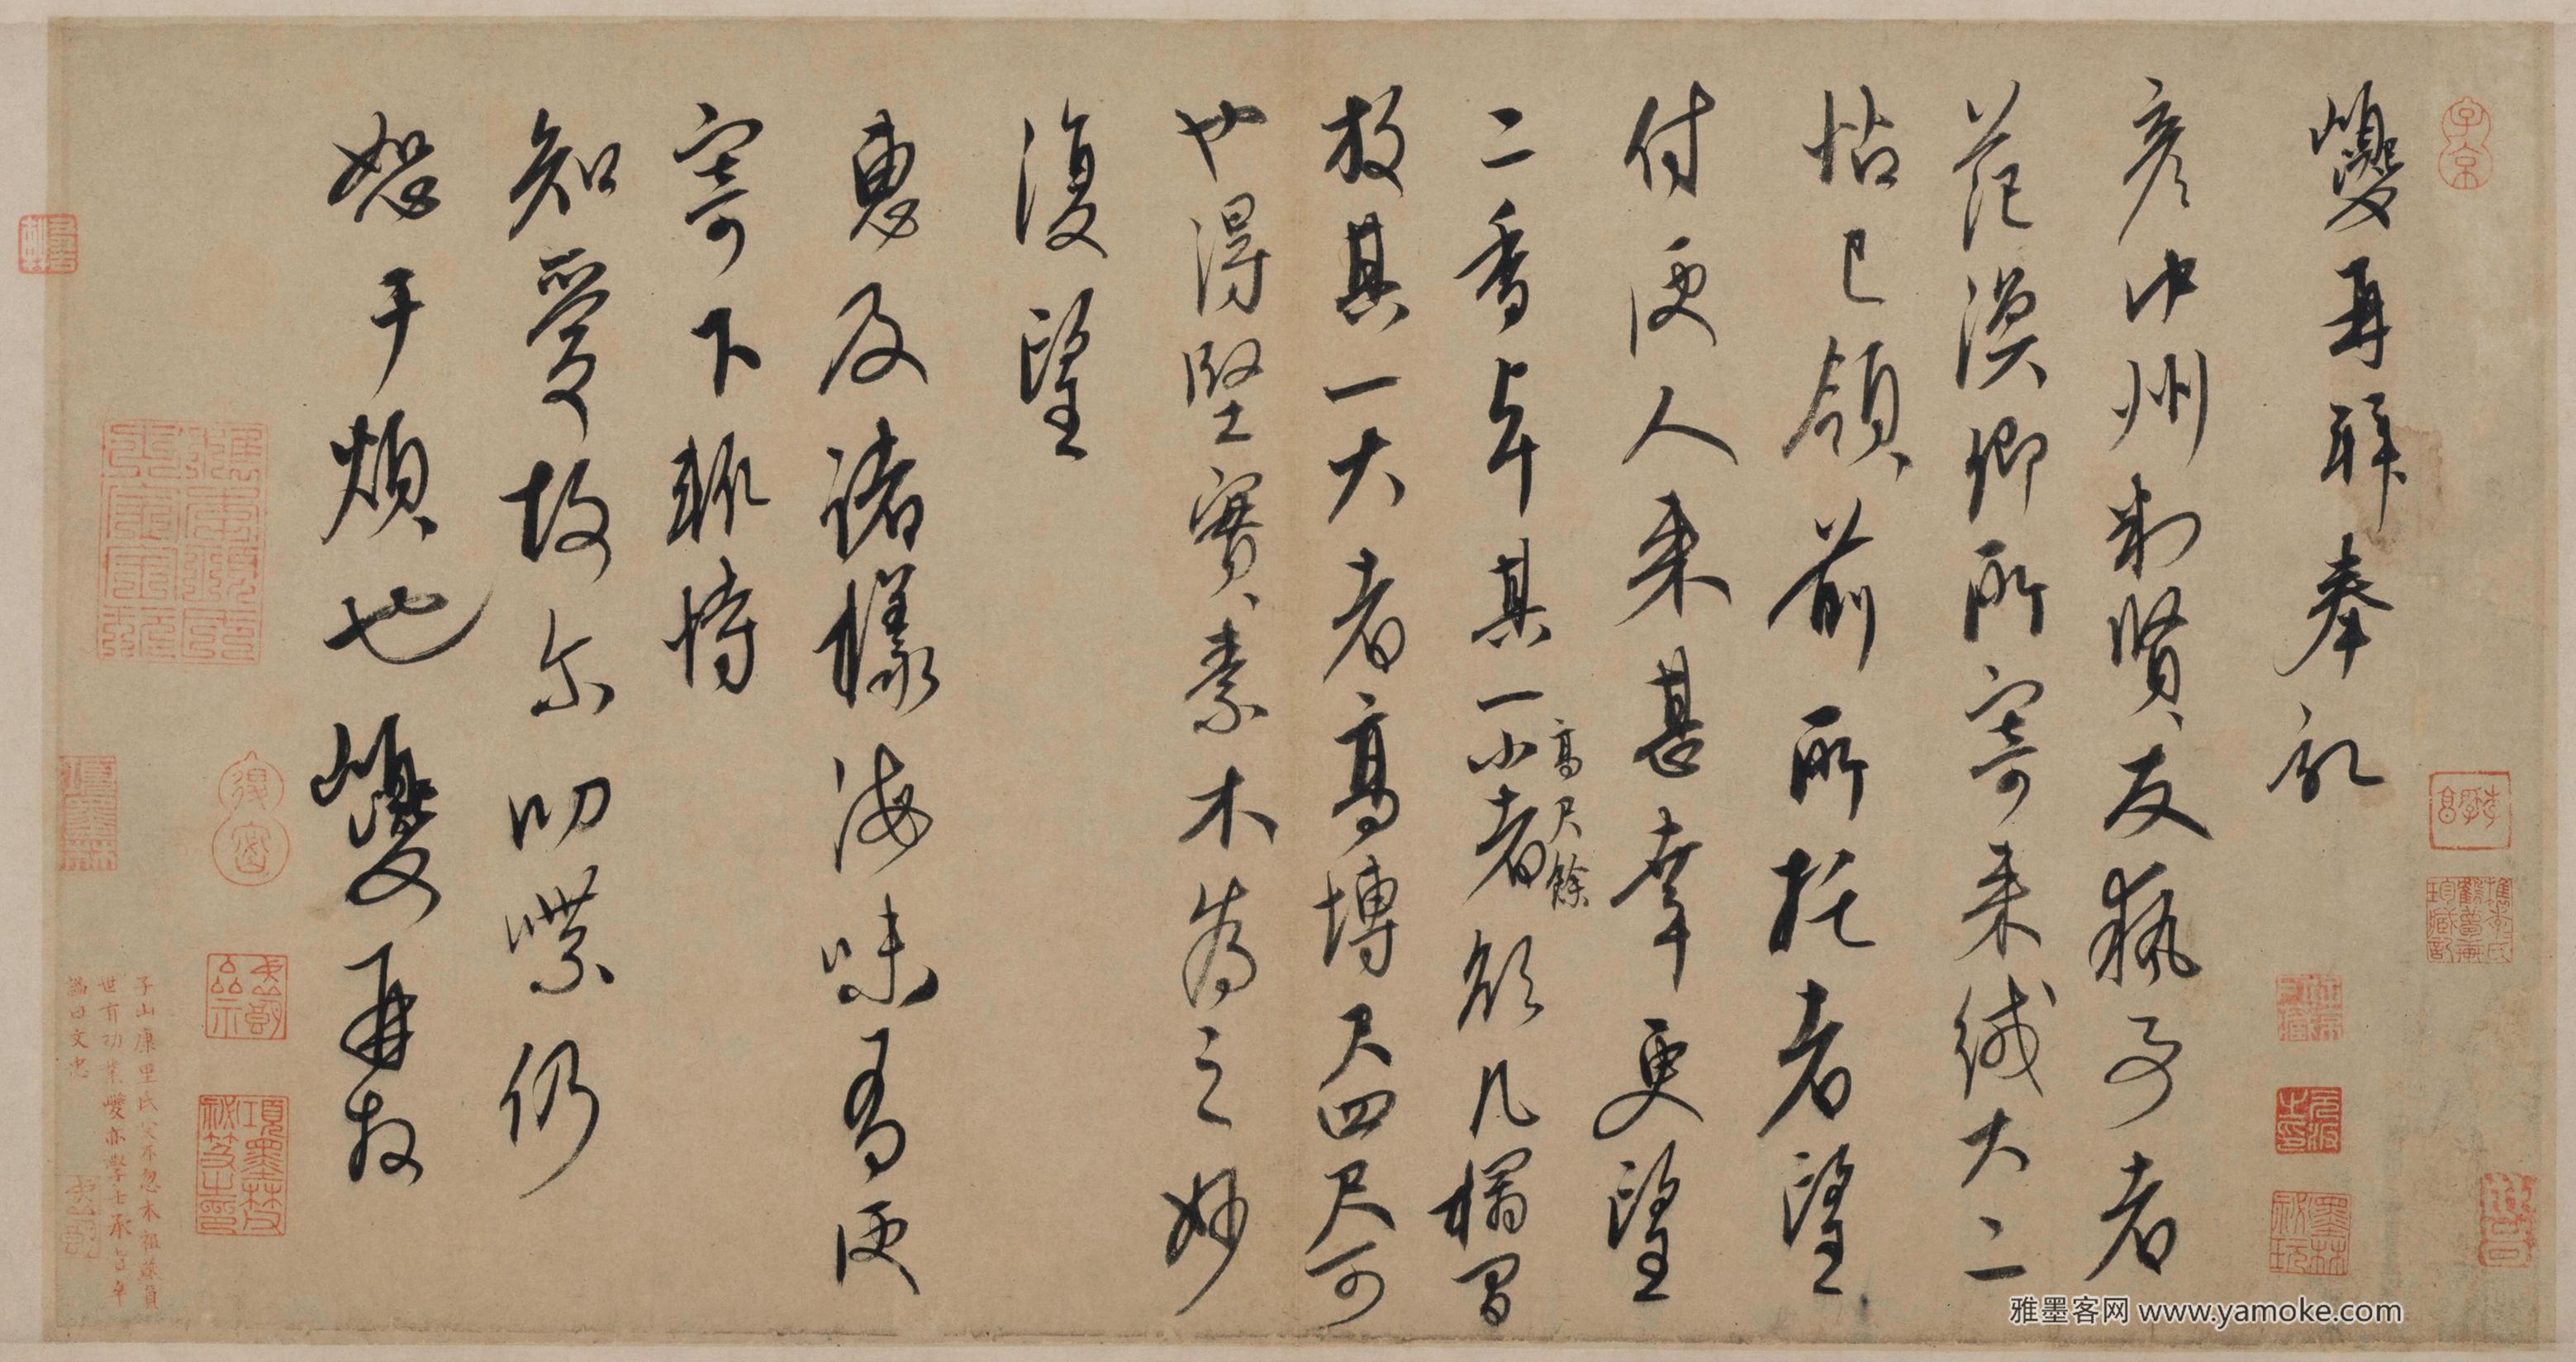 巙再拜奉記
彥中州判賢友執事者
範漢卿所寄來緘大二
帖已領前所托者望
付便人來甚幸更望
二香卓其一小者高尺餘欲几榻間
放其一大者高博尺四尺可
也得堅實素木為之妙
復望
惠及諸樣海味有便
寄下輒恃
知愛故尔叨喋仍
恕干煩也巙再拜
子山康里氏父不忽木祖燕真
世有功業巙亦學士承旨卒
謚曰文忠
子京
雅墨客网 www.yamoke.com